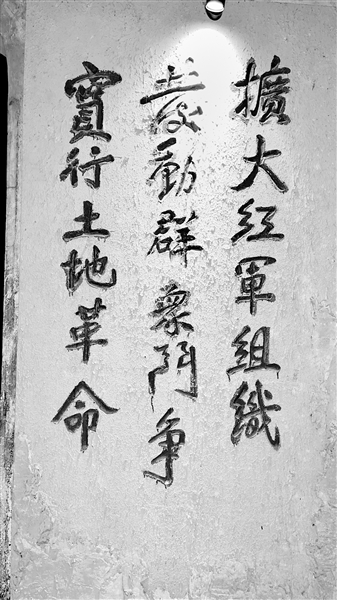 擴大红軍組織
发動群衆鬥争
實行土地革命